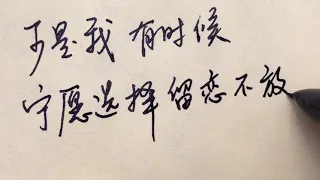 于是我 有时候
宁愿选择留恋不放